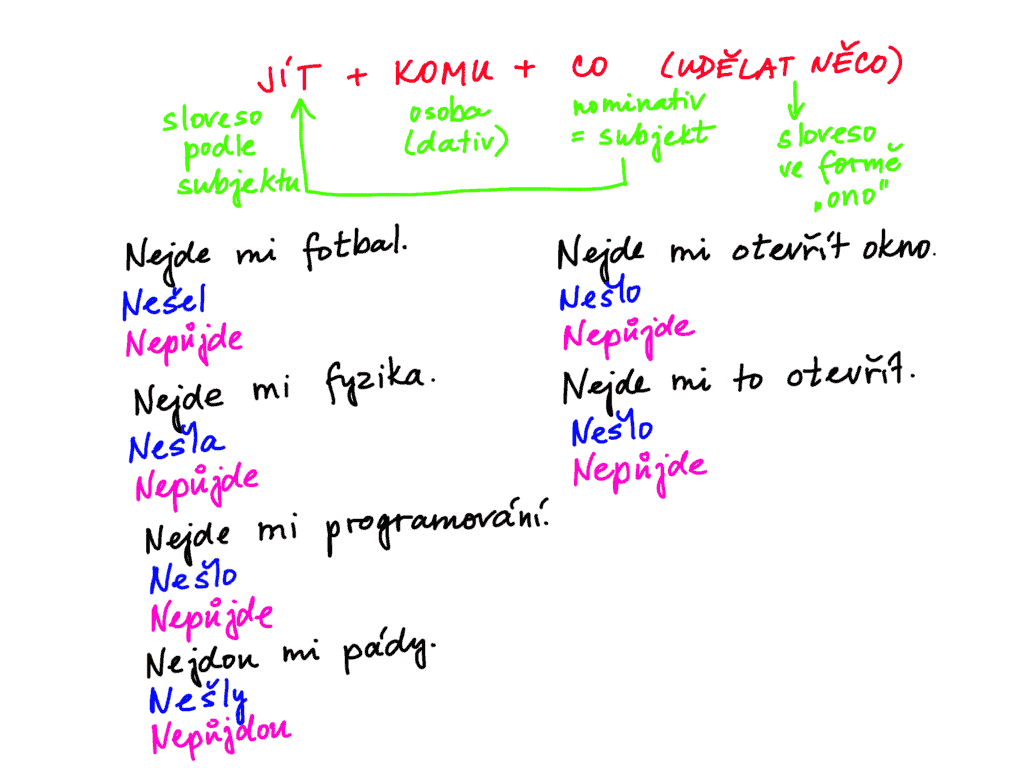 JÍT + KOMU + CO (UDĚLAT NĚCO)
sloveso podle subjektu
osoba (dativ)
nominativ = subjekt
sloveso ve formě „ono"
Nejde mi fotbal.
Nešel
Nepůjde
Nejde mi fyzika.
Nešla
Nepůjde
Nejde mi programování.
Nešlo
Nepůjde
Nejdou mi pády.
Nešly
Nepůjdou
Nejde mi otevřít okno.
Nešlo
Nepůjde
Nejde mi to otevřít.
Nešlo
Nepůjde